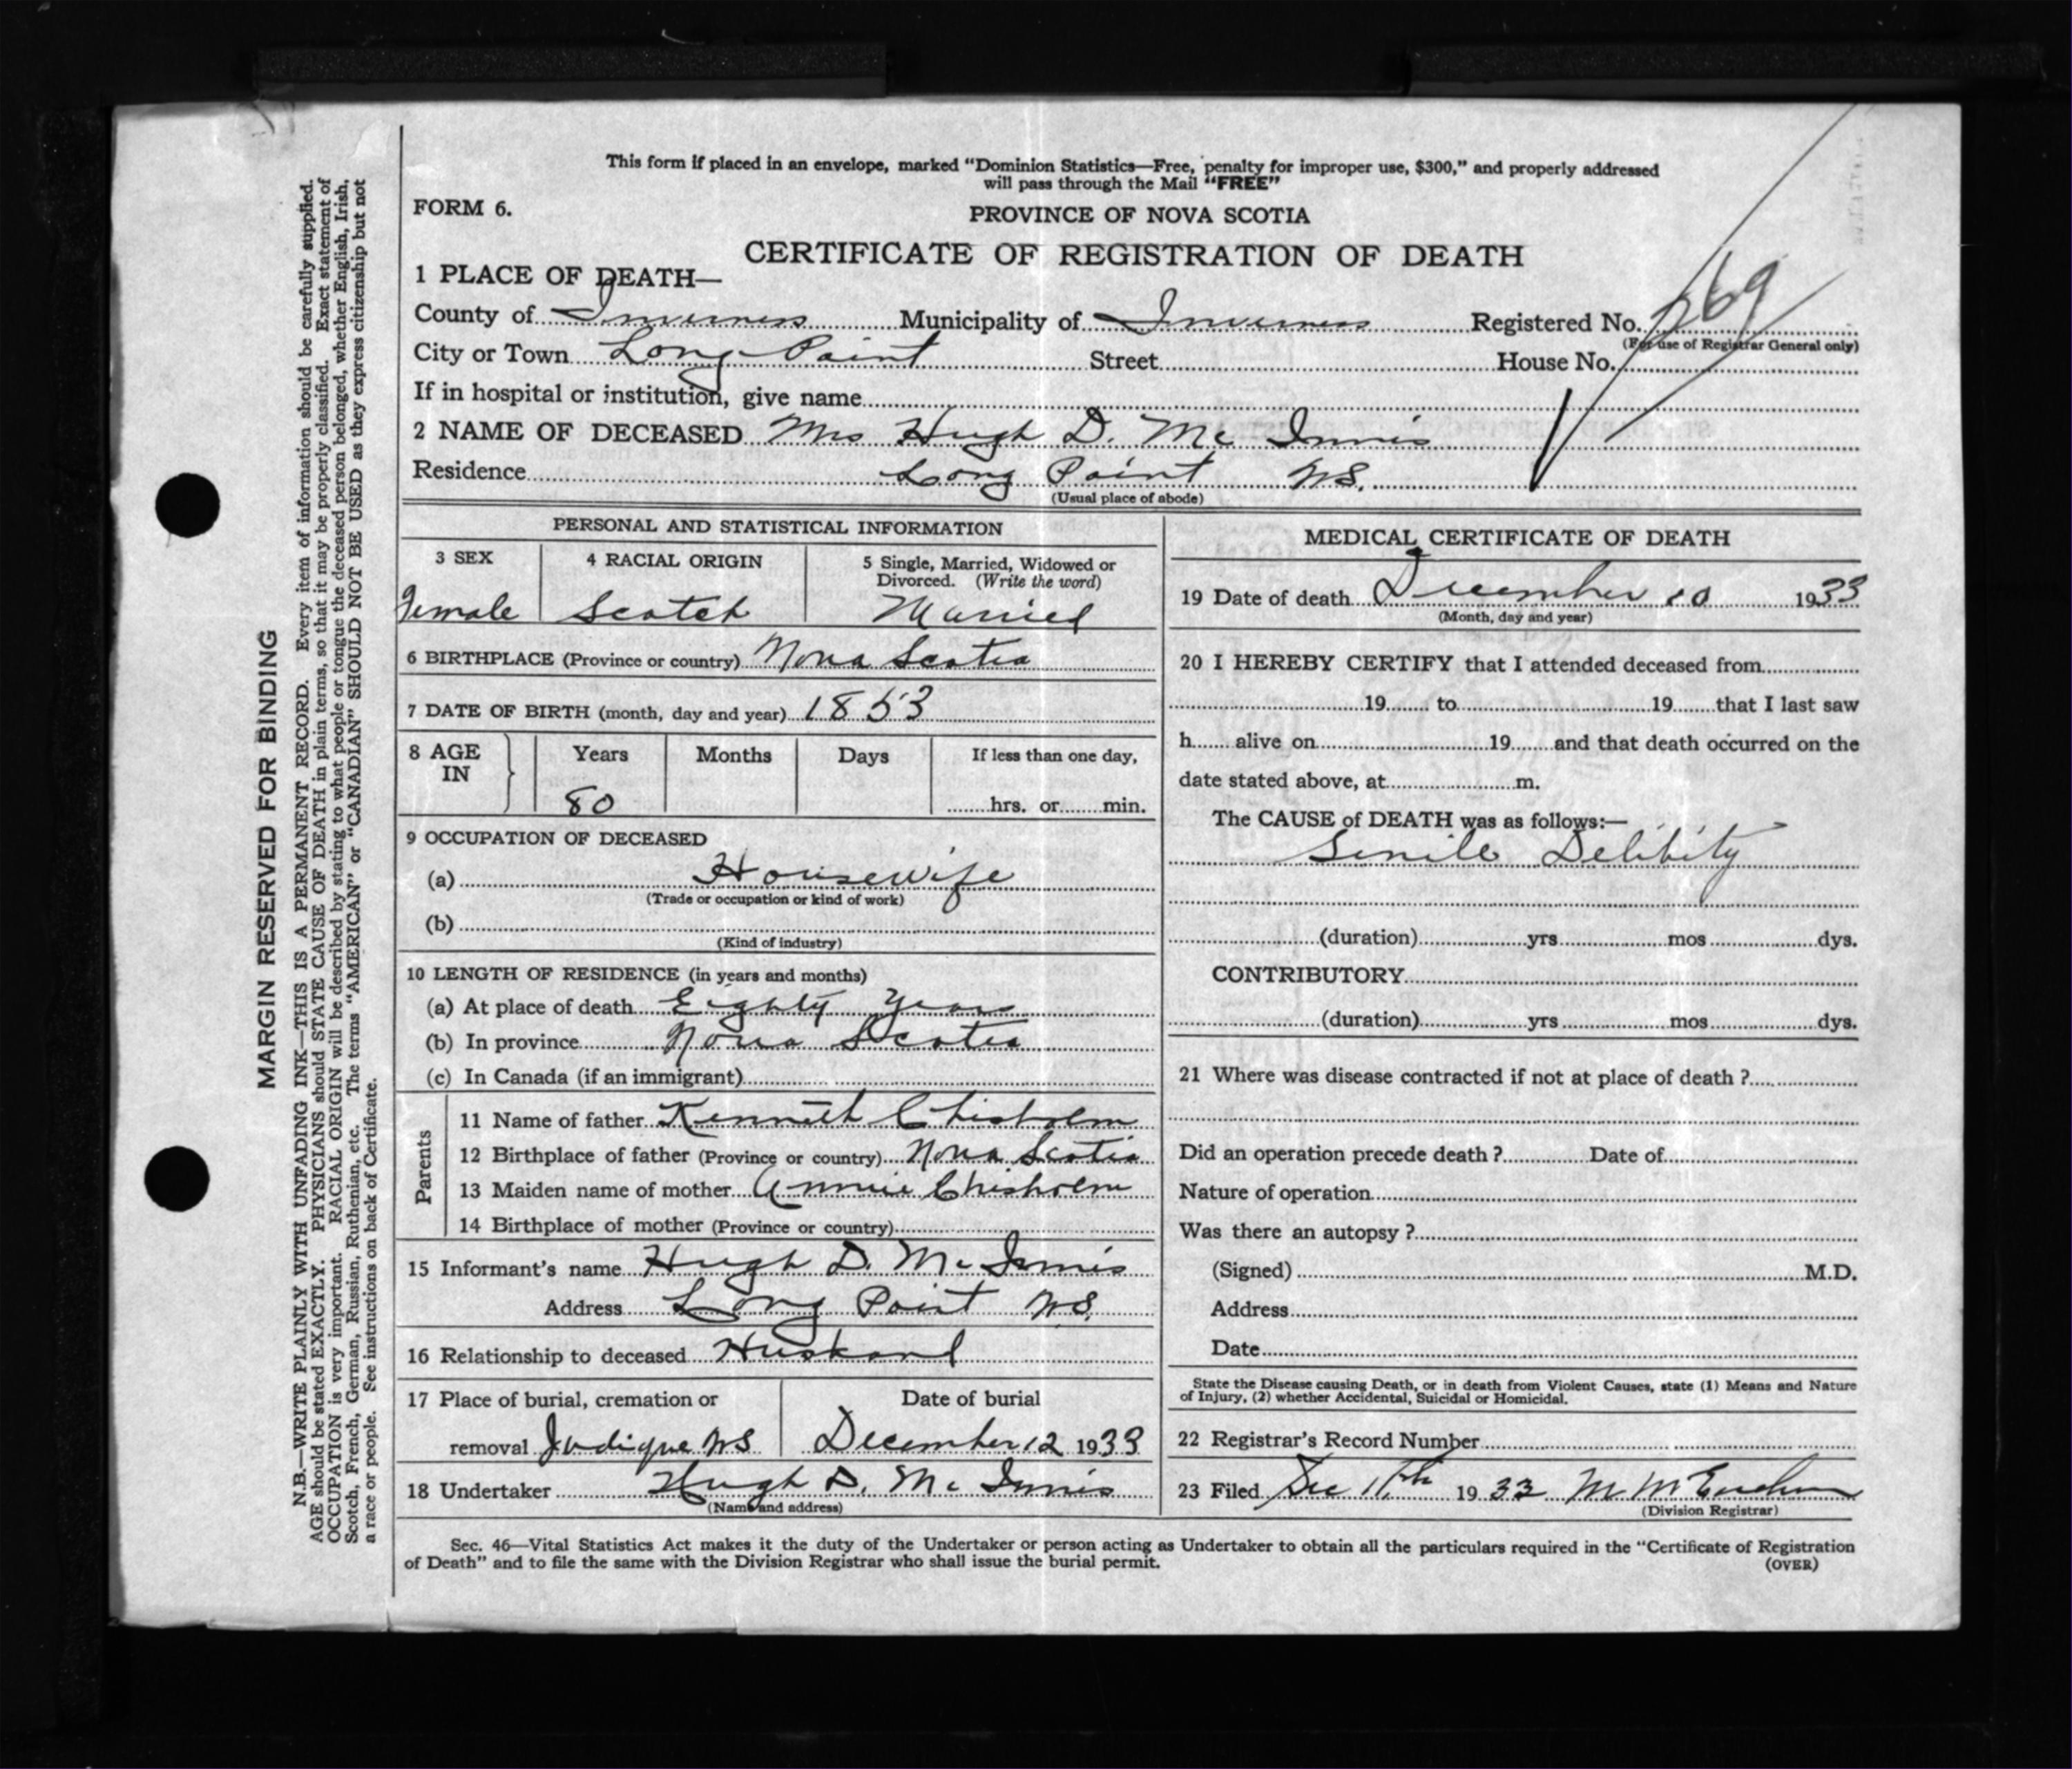 This form if placed in an envelope, marked “Dominion Statistics—Free, penalty for improper use, $300,” and properly addressed
will pass through the Mail “FREE”
FORM 6.
PROVINCE OF NOVA SCOTIA
CERTIFICATE OF REGISTRATION OF DEATH
1 PLACE OF DEATH—
County of Inverness Municipality of Inverness Registered No. 269
(For use of Registrar General only)
City or Town Long Point Street House No.
If in hospital or institution, give name
2 NAME OF DECEASED Mrs Hugh D. Mc Innis
Residence Long Point NS.
(Usual place of abode)
PERSONAL AND STATISTICAL INFORMATION
3 SEX 4 RACIAL ORIGIN 5 Single, Married, Widowed or
Divorced. (Write the word)
Female Scotch Married
6 BIRTHPLACE (Province or country) Nova Scotia
7 DATE OF BIRTH (month, day and year) 1853
8 AGE IN Years Months Days If less than one day,
80 hrs. or min.
9 OCCUPATION OF DECEASED
(a) Housewife
(Trade or occupation or kind of work)
(b)
(Kind of industry)
10 LENGTH OF RESIDENCE (in years and months)
(a) At place of death Eighty Years
(b) In province Nova Scotia
(c) In Canada (if an immigrant)
Parents
11 Name of father Kenneth Chisholm
12 Birthplace of father (Province or country) Nova Scotia
13 Maiden name of mother Annie Chisholm
14 Birthplace of mother (Province or country)
15 Informant’s name Hugh D. Mc Innis
Address Long Point NS.
16 Relationship to deceased Husband
17 Place of burial, cremation or Date of burial
removal Judique NS December 12 1933
18 Undertaker Hugh D. Mc Innis
(Name and address)
MEDICAL CERTIFICATE OF DEATH
19 Date of death December 10 1933
(Month, day and year)
20 I HEREBY CERTIFY that I attended deceased from
19 to 19 that I last saw
h alive on 19 and that death occurred on the
date stated above, at m.
The CAUSE of DEATH was as follows:—
Senile Debility
(duration) yrs mos dys.
CONTRIBUTORY
(duration) yrs mos dys.
21 Where was disease contracted if not at place of death ?
Did an operation precede death ? Date of
Nature of operation
Was there an autopsy ?
(Signed) M.D.
Address
Date
State the Disease causing Death, or in death from Violent Causes, state (1) Means and Nature
of Injury, (2) whether Accidental, Suicidal or Homicidal.
22 Registrar’s Record Number
23 Filed Dec 11th 1933 M McEachern
(Division Registrar)
Sec. 46—Vital Statistics Act makes it the duty of the Undertaker or person acting as Undertaker to obtain all the particulars required in the “Certificate of Registration
of Death” and to file the same with the Division Registrar who shall issue the burial permit.
(OVER)
MARGIN RESERVED FOR BINDING
N.B.—WRITE PLAINLY WITH UNFADING INK—THIS IS A PERMANENT RECORD. Every item of information should be carefully supplied.
AGE should be stated EXACTLY. PHYSICIANS should STATE CAUSE OF DEATH in plain terms, so that it may be properly classified. Exact statement of
OCCUPATION is very important. RACIAL ORIGIN will be described by stating to what people or tongue the deceased person belonged, whether English, Irish,
Scotch, French, German, Russian, Ruthenian, etc. The terms “AMERICAN” or “CANADIAN” SHOULD NOT BE USED as they express citizenship but not
a race or people. See instructions on back of Certificate.